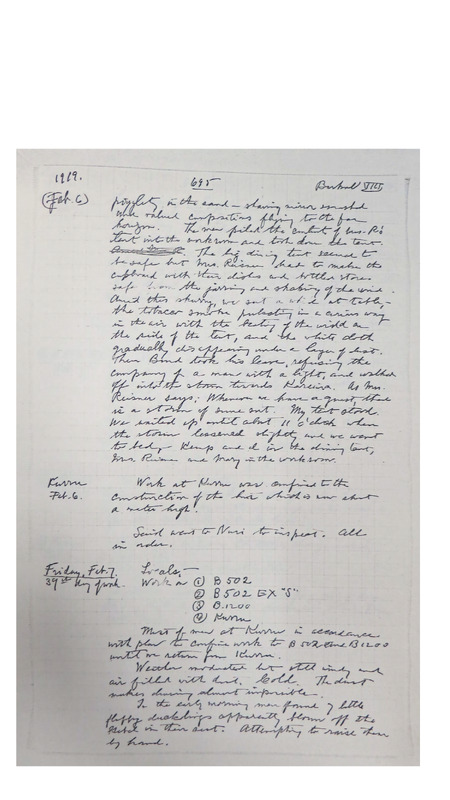 1919.
695
Barkal VIII
(Feb. 6)
piggledy in the sand – shaving mirror smashed
more valued compositions flying to the far
horizon. The men piled the content of Mrs. R's
tent into the workroom and took down the tent.
The big dining tent seemed to
be safe but Mrs. Reisner had to make the
cupboard with their dishes and bottled stores
safe from the jarring and shaking of the wind.
Amid this sharing, we sat at table,
the tobacco smoke pulsating in a curious way
in the air with the beating of the wind on
the side of the tent, and the white cloth
gradually disappearing under a layer of dust.
Then Bond took his leave, refusing the
company of a man with a light, and walked
off into the storm towards Kareima. As Mrs.
Reisner says: Whenever we have a guest, there
is a storm of some sort. My tent stood.
We waited up until about 11 o'clock when
the storm lessened slightly, and we went
to bed – Kemp and I in the dining tent,
Mrs. Reisner and Mary in the workroom.
Kurru
Feb. 6.
Work at Kurru was confined to the
construction of the house which is now about
a meter high.
Said went to Nuri to inspect. All
in order.
Friday, Feb. 7.
39th day of work.
Locals,–
Work on ① B 502
② B 502 EX "S"
③ B. 1200
④ Kurru
Most of men at Kurru in accordance
with plan to confine work to B 502 and B 1200
until we return from Kurru.
Weather moderated but still windy and
air filled with dust. Cold. The dust
makes drawing almost impossible.
In the early morning men found 7 little
fluffy ducklings apparently blown off the
Gebel in their nest. Attempting to raise them
by hand.